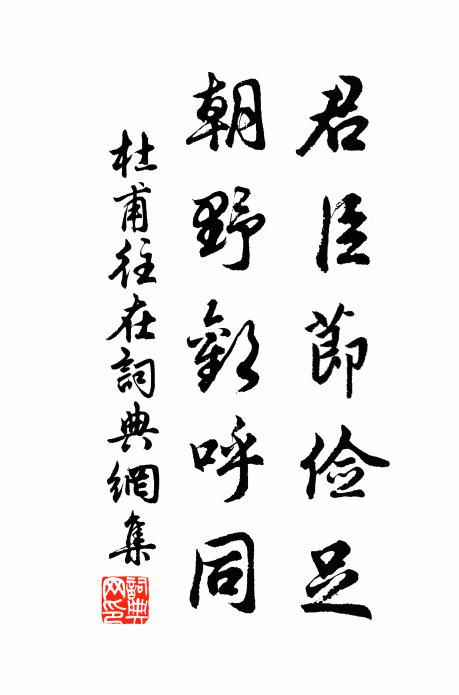 君臣節儉足
朝野歡呼同
杜甫往在詞典網集
詞典
网印